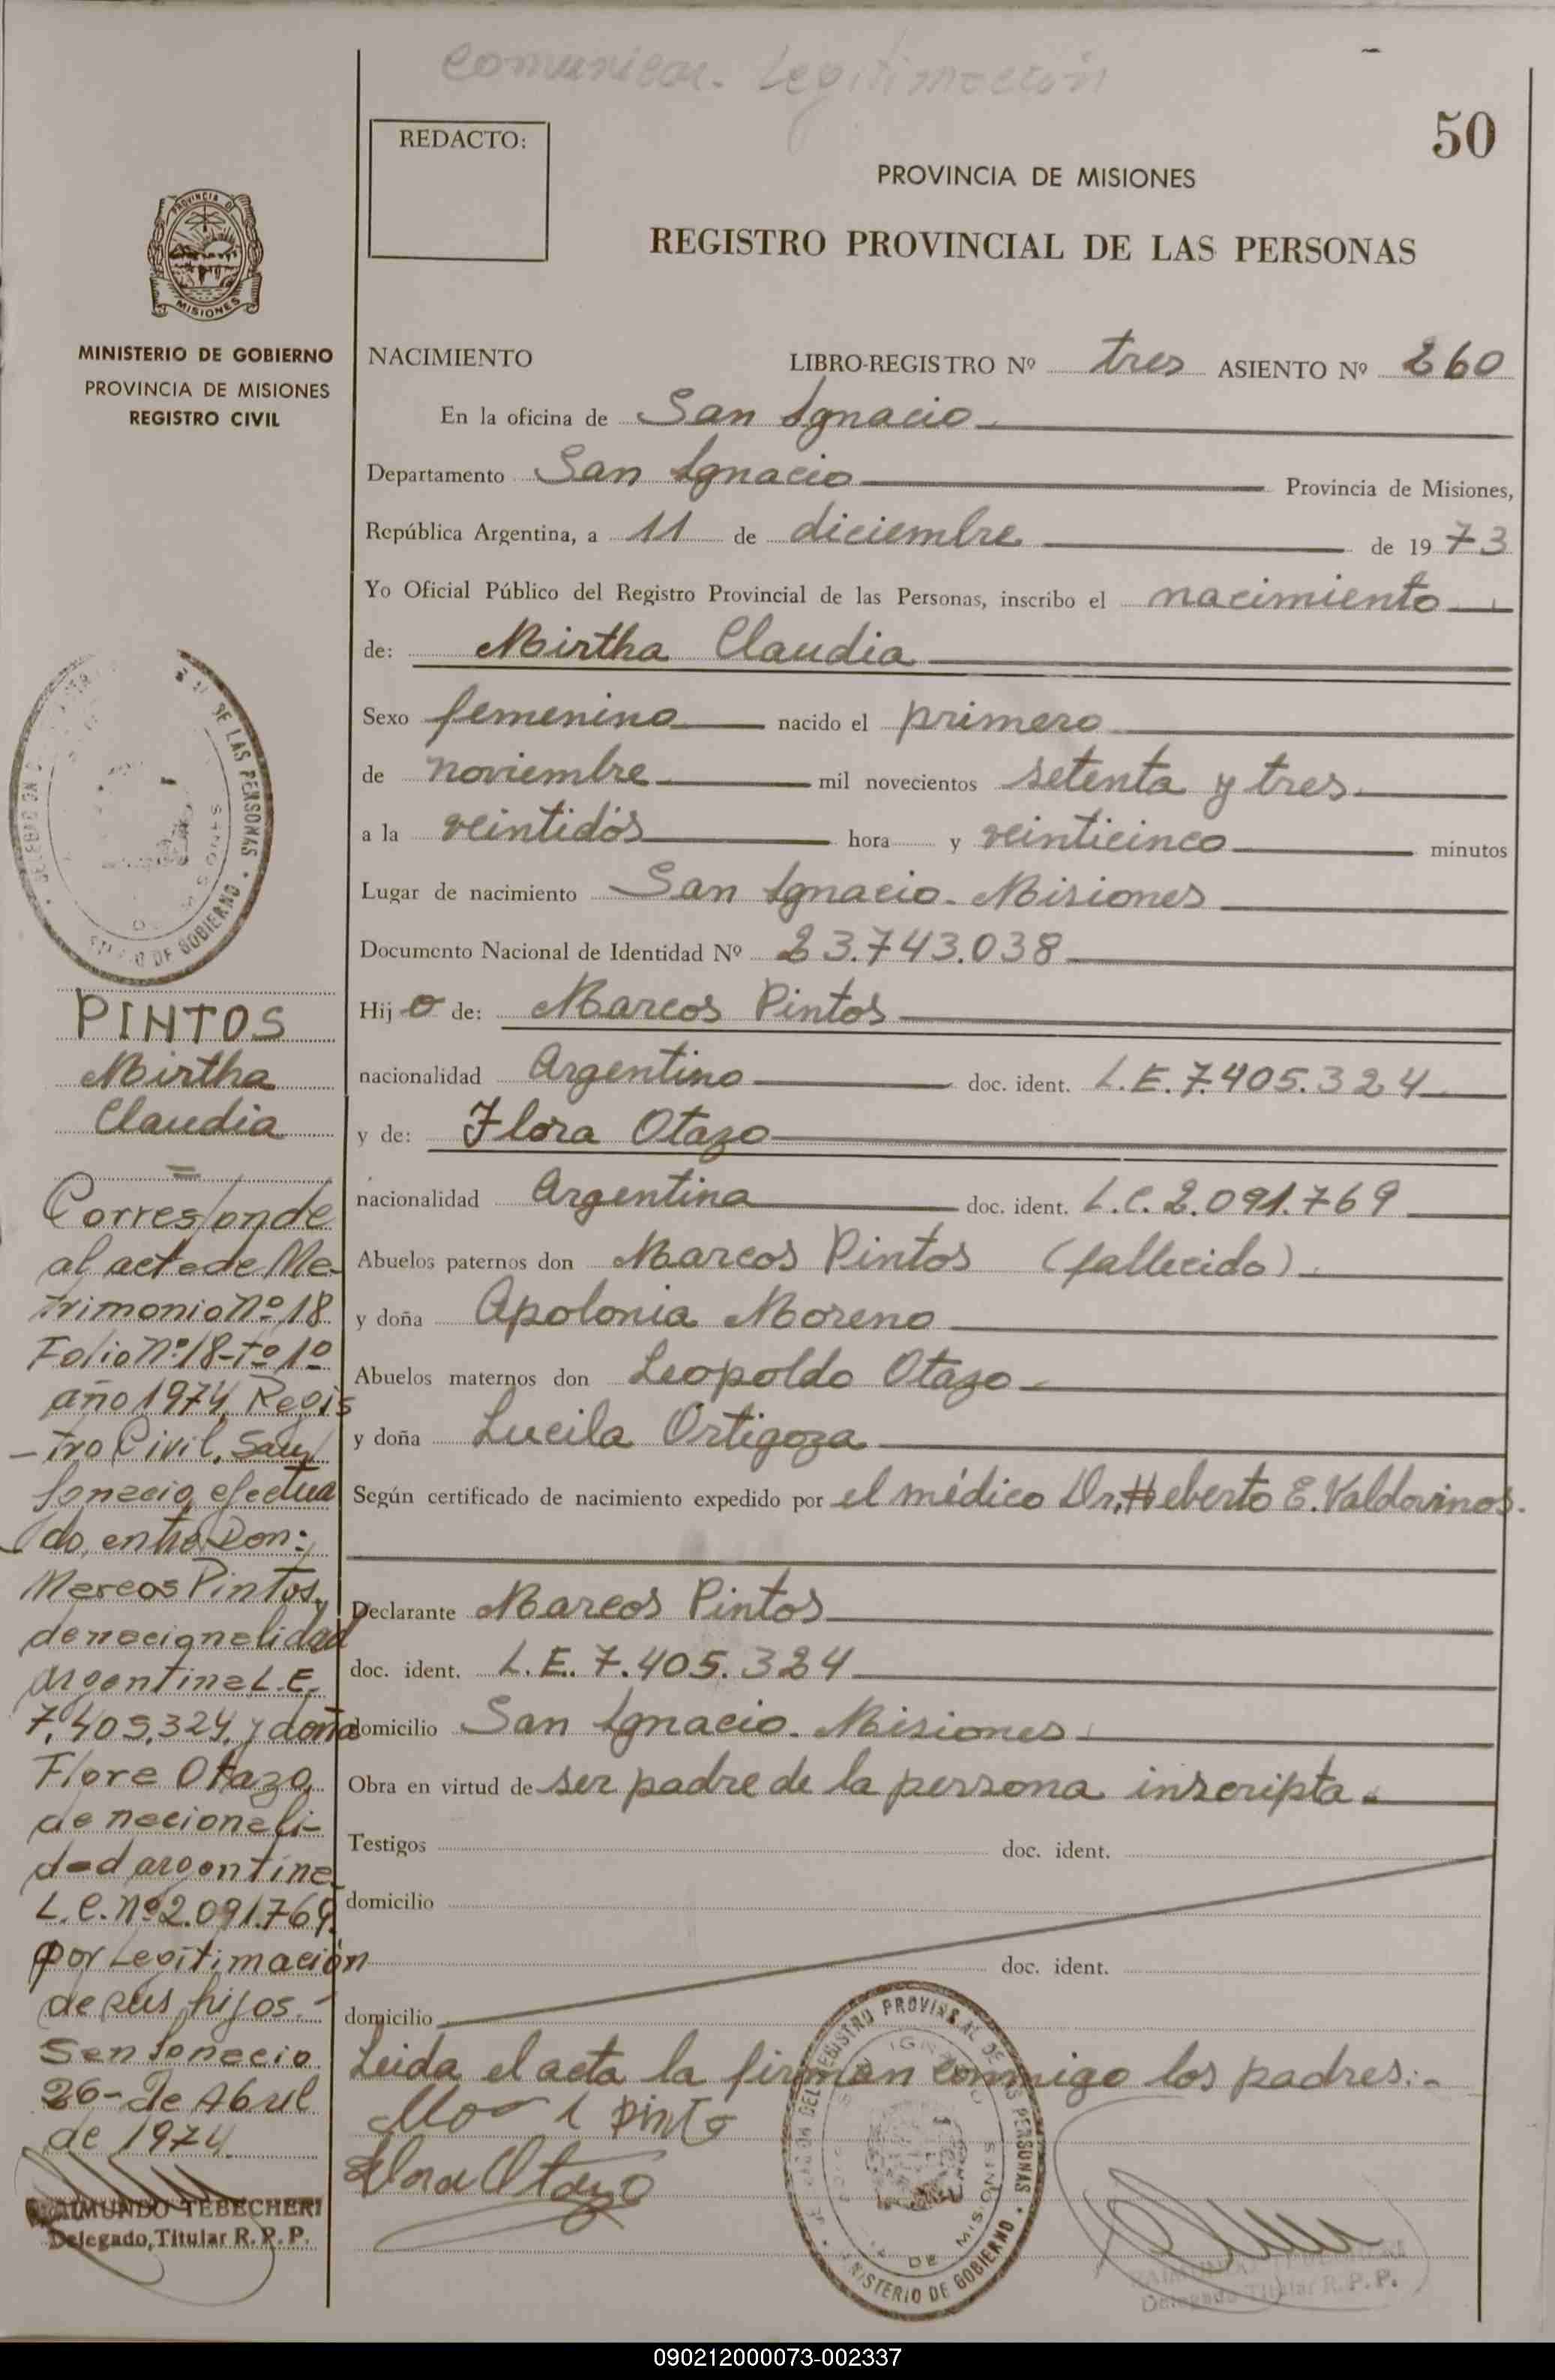 comunicar. Legitimación
50
REDACTO:
PROVINCIA DE MISIONES
REGISTRO PROVINCIAL DE LAS PERSONAS
PROVINCIA DE
MISIONES
MINISTERIO DE GOBIERNO
PROVINCIA DE MISIONES
REGISTRO CIVIL
NACIMIENTO LIBRO-REGISTRO Nº tres ASIENTO Nº 260
En la oficina de San Ignacio
Departamento San Ignacio Provincia de Misiones,
República Argentina, a 11 de diciembre de 1973
Yo Oficial Público del Registro Provincial de las Personas, inscribo el nacimiento
de: Mirtha Claudia
Sexo femenino nacido el primero
de noviembre mil novecientos setenta y tres
a la veintidós hora y veinticinco minutos
Lugar de nacimiento San Ignacio. Misiones
Documento Nacional de Identidad Nº 23.743.038
Hijo de: Marcos Pintos
nacionalidad Argentino doc. ident. L.E.7.405.324
y de: Flora Otazo
nacionalidad Argentina doc. ident. L.C.2.091.769
Abuelos paternos don Marcos Pintos (fallecido)
y doña Apolonia Moreno
Abuelos maternos don Leopoldo Otazo
y doña Lucila Ortigoza
Según certificado de nacimiento expedido por el médico Dr. Heberto E. Valdovinos.
Declarante Marcos Pintos
doc. ident. L.E. 7.405.324
domicilio San Ignacio. Misiones
Obra en virtud de ser padre de la persona inscripta.
Testigos doc. ident.
domicilio
doc. ident.
domicilio
Leida el acta la firman conmigo los padres:-
Flora Otazo
RAIMUNDO TEBECHERI
Delegado Titular R.P.P.
DE LAS PERSONAS
DE GOBIERNO
PINTOS
Mirtha
Claudia
=
Corresponde
al acta de Ma-
trimonio nº 18
Folio nº 18-tº 1º
año 1974, Regis
-tro Civil, San
Ignacio, efectua
do, entre Don:
Marcos Pintos,
de nacionalidad
argentina L.E.
7.405.324, y doña
Flora Otazo,
de nacionali-
dad argentina
L.C.nº2.091.769,
por Legitimación
de sus hijos.-
San Ignacio
26- de Abril
de 1974.
RAIMUNDO TEBECHERI
Delegado Titular R.P.P.
REGISTRO PROVINCIAL DE LAS PERSONAS
MINISTERIO DE GOBIERNO
090212000073-002337